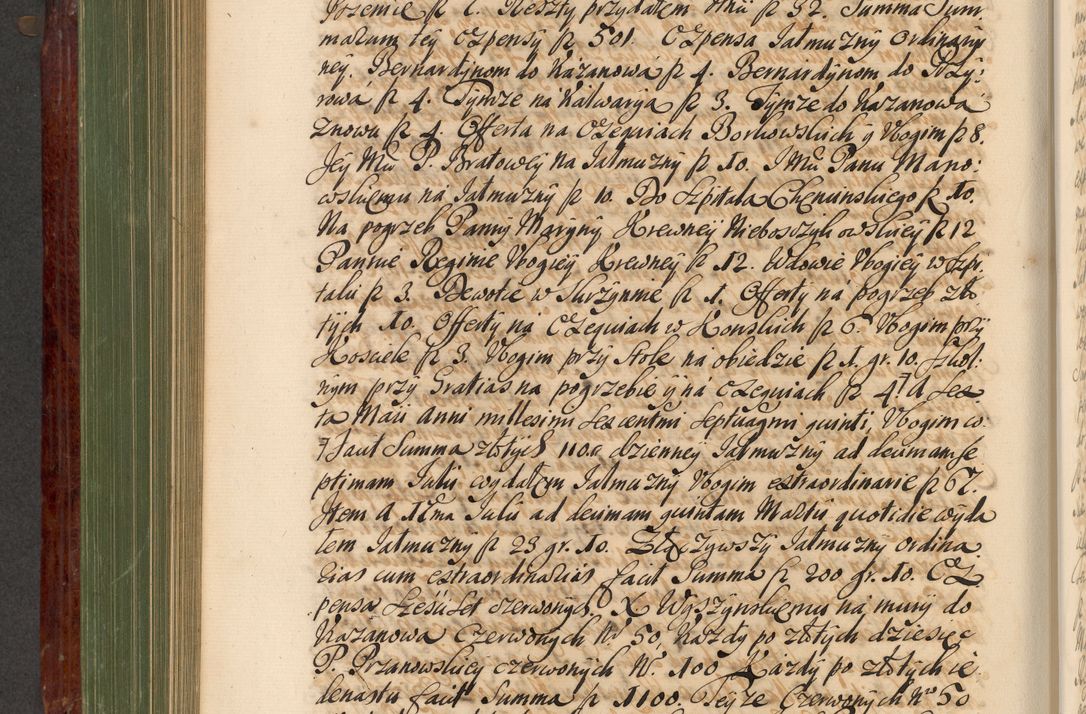 Przemie fl 2. Reszty przydałem Mnii fl 32. Summa Sum
marum tey Expensy fl 501. Expensa Jałmuzny Ordinaryi
ney. Bernardynom do Kazanowa fl 4. Bernardynom do
rowa fl 4. Tymze na Kalwaryą fl 3. Tymze do Kazanowa
znowu fl 4. Offerta na Exequiach Borkowskich y Vbogim fl 8.
Jey Mći P. Bratowey na Jałmuzny fl 10. J Mći Panu Mano:
wskiemu na Jałmuzny fl 10. Do Szpitala Chęcinskiego fl 10.
Na pogrzeb Panny Maryny Krewney Nieboszczykowskiey fl 12
Pannie Reginie Vbogiey Krewney fl 12. Wdowie Vbogiey w Szpi
talu fl 3. Dewotce w Surzynnie fl 1. Offerty na pogrzeb zło
tych 10. Offerty na Exequiach w Konskich fl 6. Vbogim przy
Kosciele fl 3. Vbogim przy Stole na obiedzie fl 1. gr. 10. Szkol
nym przy Gratias na pogrzebie y na Exequiach fl 4. A sex
ta Maii Anni millesimi sexcentmi septuagmi quinti, Vbogim co
facit Summa złotych 110. dzienney Jałmuzny ad decimam se
ptimam Julii wydałem Jałmuzny Vbogim extraordinarie fl 67.
Item A 17ma Julii ad decimam quintam Martii quotidie wyda
łem Jałmuzny fl 23 gr. 10. Złązywszy Jałmuzny ordina
rias cum extraordinariis facit Summa fl 200 gr. 10. Ex
pensa sześćset czerwonych. X Wyszynskiemu na mury do
Kazanowa Czerwonych No 50, Kazdy po złotych dziesięc
P. Przanowskiey czerwonych No. 100 Kazdy po złotych ie
denastu facit Summa fl 1100. Teyze Czerwonych No 50